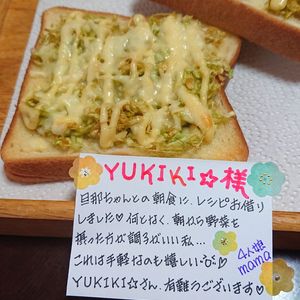 YUKIKI☆様
旦那ちゃんとの朝食に、レシピお借り
しました♡何となく、朝から野菜を
摂った方が調子がいい私…
これは手軽なのも嬉しい
YUKIKI☆さん、有難うございます♡
4人娘
mama